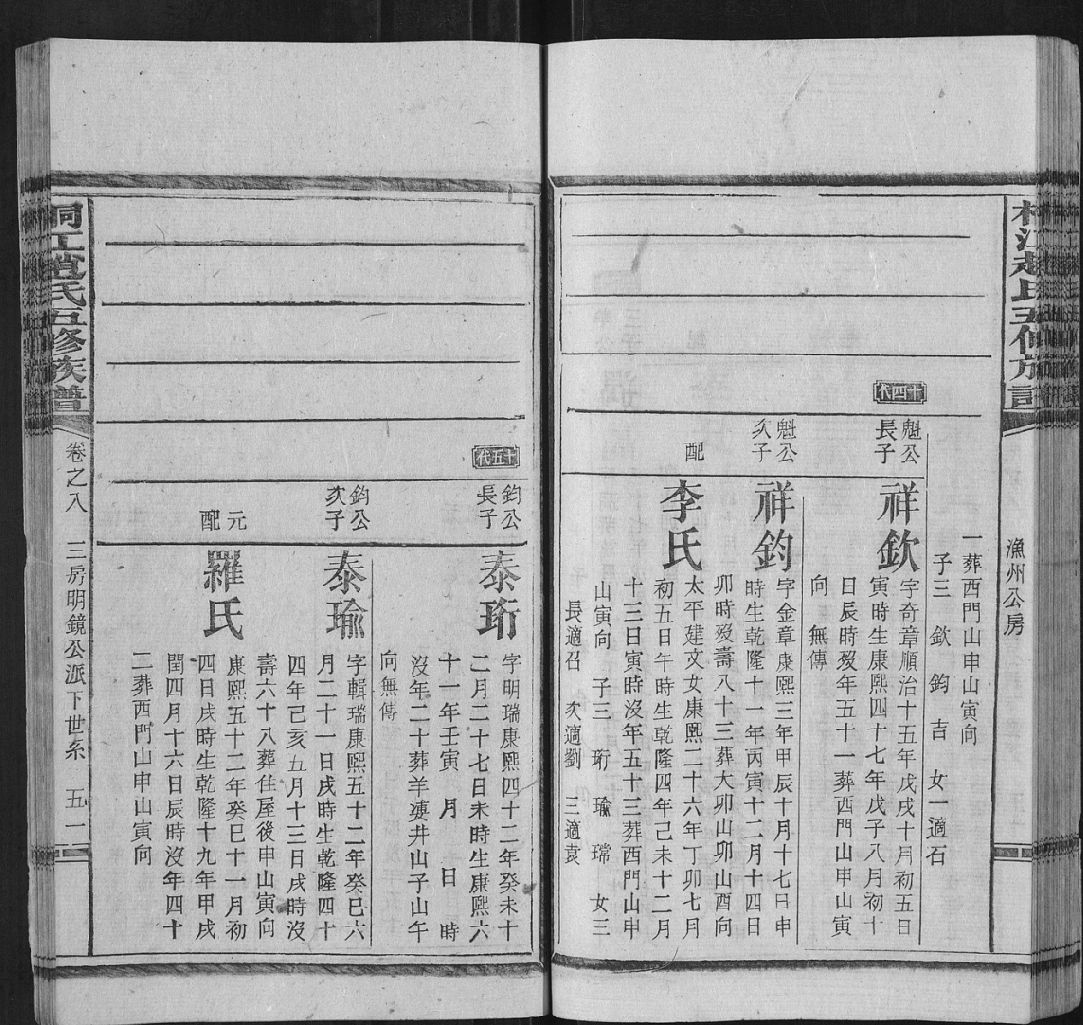 江趙氏五修族譜
漁州公房
一葬西門山申山寅向
子三 欽 鈞 吉 女一適石
十四代
魁公
長子
祥欽
字奇章順治十五年戊戌十月初五日
寅時生康熙四十七年戊子八月初十
日辰時歿年五十一葬西門山申山寅
向 無傳
魁公
次子
祥鈞
字金章康熙三年甲辰十月十七日申
時生乾隆十一年丙寅十二月十四日
卯時歿壽八十三葬大卯山卯山酉向
配
李氏
太平建文女康熙二十六年丁卯七月
初五日午時生乾隆四年己未十二月
十三日寅時沒年五十三葬西門山申
山寅向 子三 珩 瑜 瑺 女三
長適召 次適劉 三適袁
十五代
鈞公
長子
泰珩
字明瑞康熙四十二年癸未十
二月二十七日未時生康熙六
十一年壬寅 月 日 時
沒年二十葬羊婆井山子山午
向無傳
鈞公
次子
泰瑜
字輯瑞康熙五十二年癸巳六
月二十一日戌時生乾隆四十
四年己亥五月十三日戌時沒
壽六十八葬住屋後申山寅向
元
配
羅氏
康熙五十二年癸巳十一月初
四日戌時生乾隆十九年甲戌
閏四月十六日辰時沒年四十
二葬西門山申山寅向
江范氏五修族譜
卷之八 三房明鏡公派下世系 五二